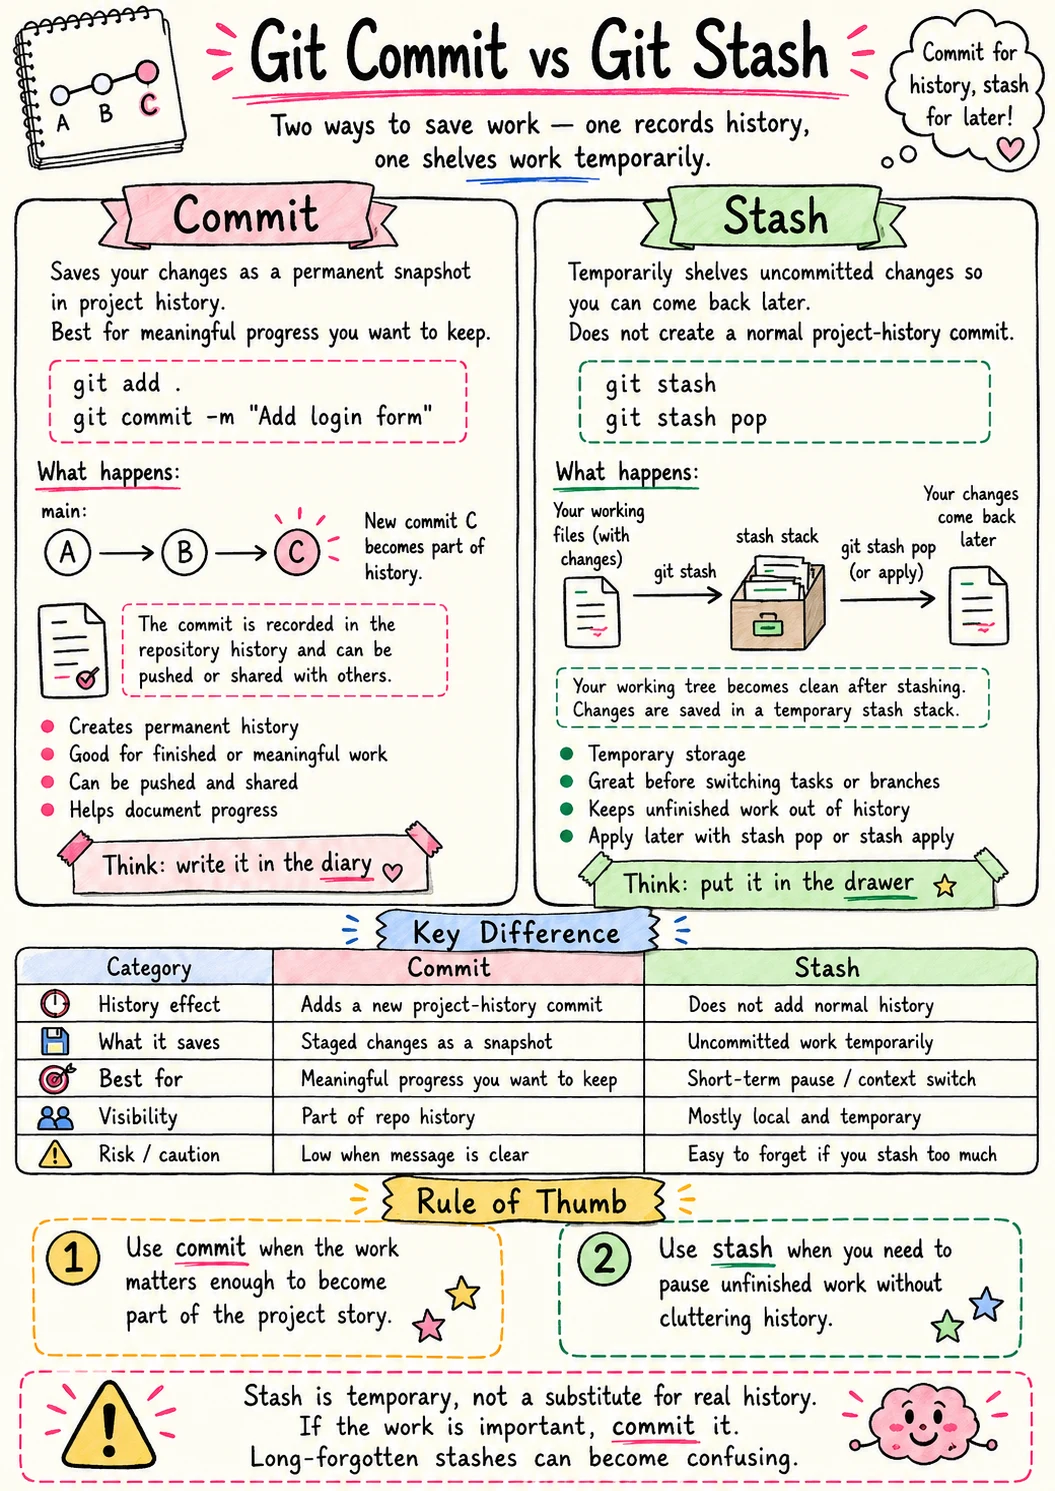 A B C
Git Commit vs Git Stash
Two ways to save work — one records history,
one shelves work temporarily.
Commit for
history, stash
for later!
Commit
Saves your changes as a permanent snapshot
in project history.
Best for meaningful progress you want to keep.
git add .
git commit -m "Add login form"
What happens:
main:
A B C
New commit C
becomes part of
history.
The commit is recorded in the
repository history and can be
pushed or shared with others.
Creates permanent history
Good for finished or meaningful work
Can be pushed and shared
Helps document progress
Think: write it in the diary
Stash
Temporarily shelves uncommitted changes so
you can come back later.
Does not create a normal project-history commit.
git stash
git stash pop
What happens:
Your working
files (with
changes)
git stash
stash stack
git stash pop
(or apply)
Your changes
come back
later
Your working tree becomes clean after stashing.
Changes are saved in a temporary stash stack.
Temporary storage
Great before switching tasks or branches
Keeps unfinished work out of history
Apply later with stash pop or stash apply
Think: put it in the drawer
Key Difference
Category Commit Stash
History effect Adds a new project-history commit Does not add normal history
What it saves Staged changes as a snapshot Uncommitted work temporarily
Best for Meaningful progress you want to keep Short-term pause / context switch
Visibility Part of repo history Mostly local and temporary
Risk / caution Low when message is clear Easy to forget if you stash too much
Rule of Thumb
1
Use commit when the work
matters enough to become
part of the project story.
2
Use stash when you need to
pause unfinished work without
cluttering history.
!
Stash is temporary, not a substitute for real history.
If the work is important, commit it.
Long-forgotten stashes can become confusing.